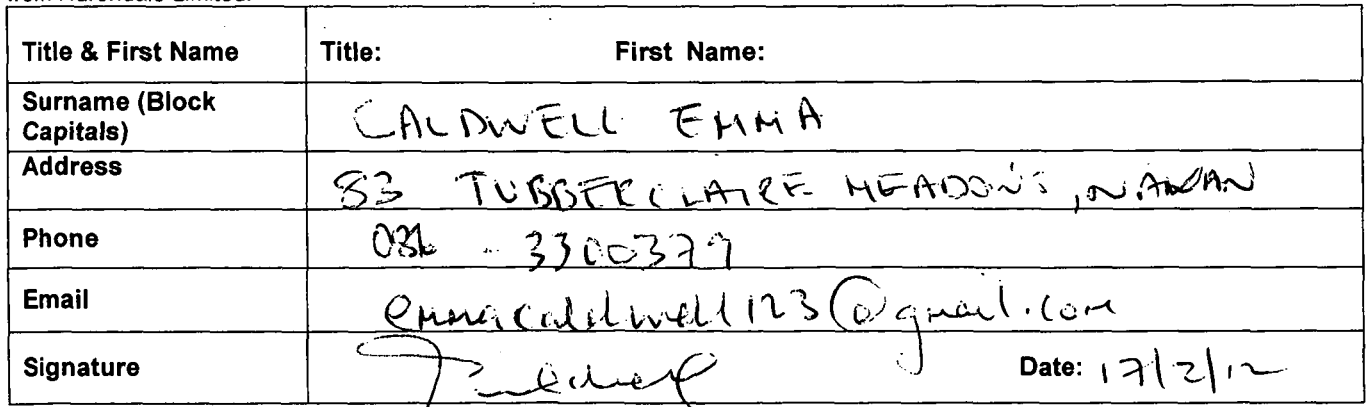 Title & First Name Title: First Name:
Surname (Block Capitals) CALDWELL EMMA
Address 83 TUBBERCLAIRE MEADOWS, NAVAN
Phone 086 - 3300379
Email emmacaldwell123@gmail.com
Signature Date: 17/2/12